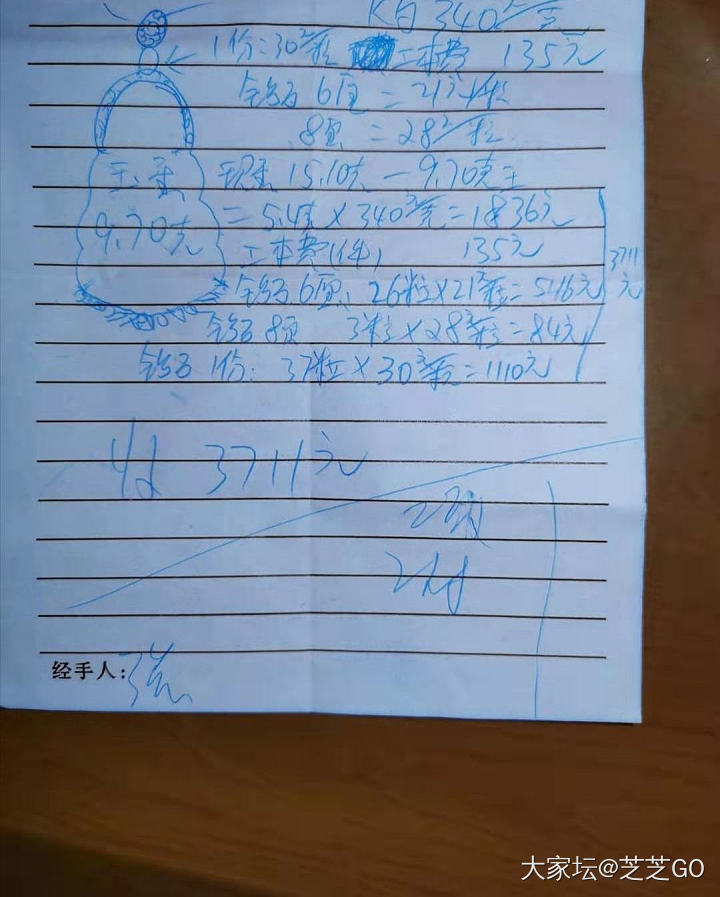 K白 340元/克
1份:30元/粒 工本费 135元
钻石 6厘 = 21元/粒
8厘 = 28元/粒
玉重 现重 15.10克 - 9.70克玉
9.70克 = 5.4克 × 340元/克 = 1836元
工本费(件) 135元
3711元
钻石 6厘: 26粒×21元/粒 = 546元
钻石 8厘 3粒×28元/粒 = 84元
钻石 1份: 37粒×30元/粒 = 1110元
付 3711元
经手人:张
大家坛@芝芝GO